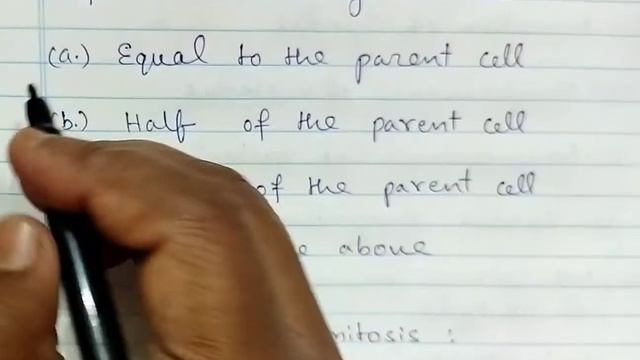 (a.) Equal to the parent cell
(b.) Half of the parent cell
of the parent cell
above
mitosis :